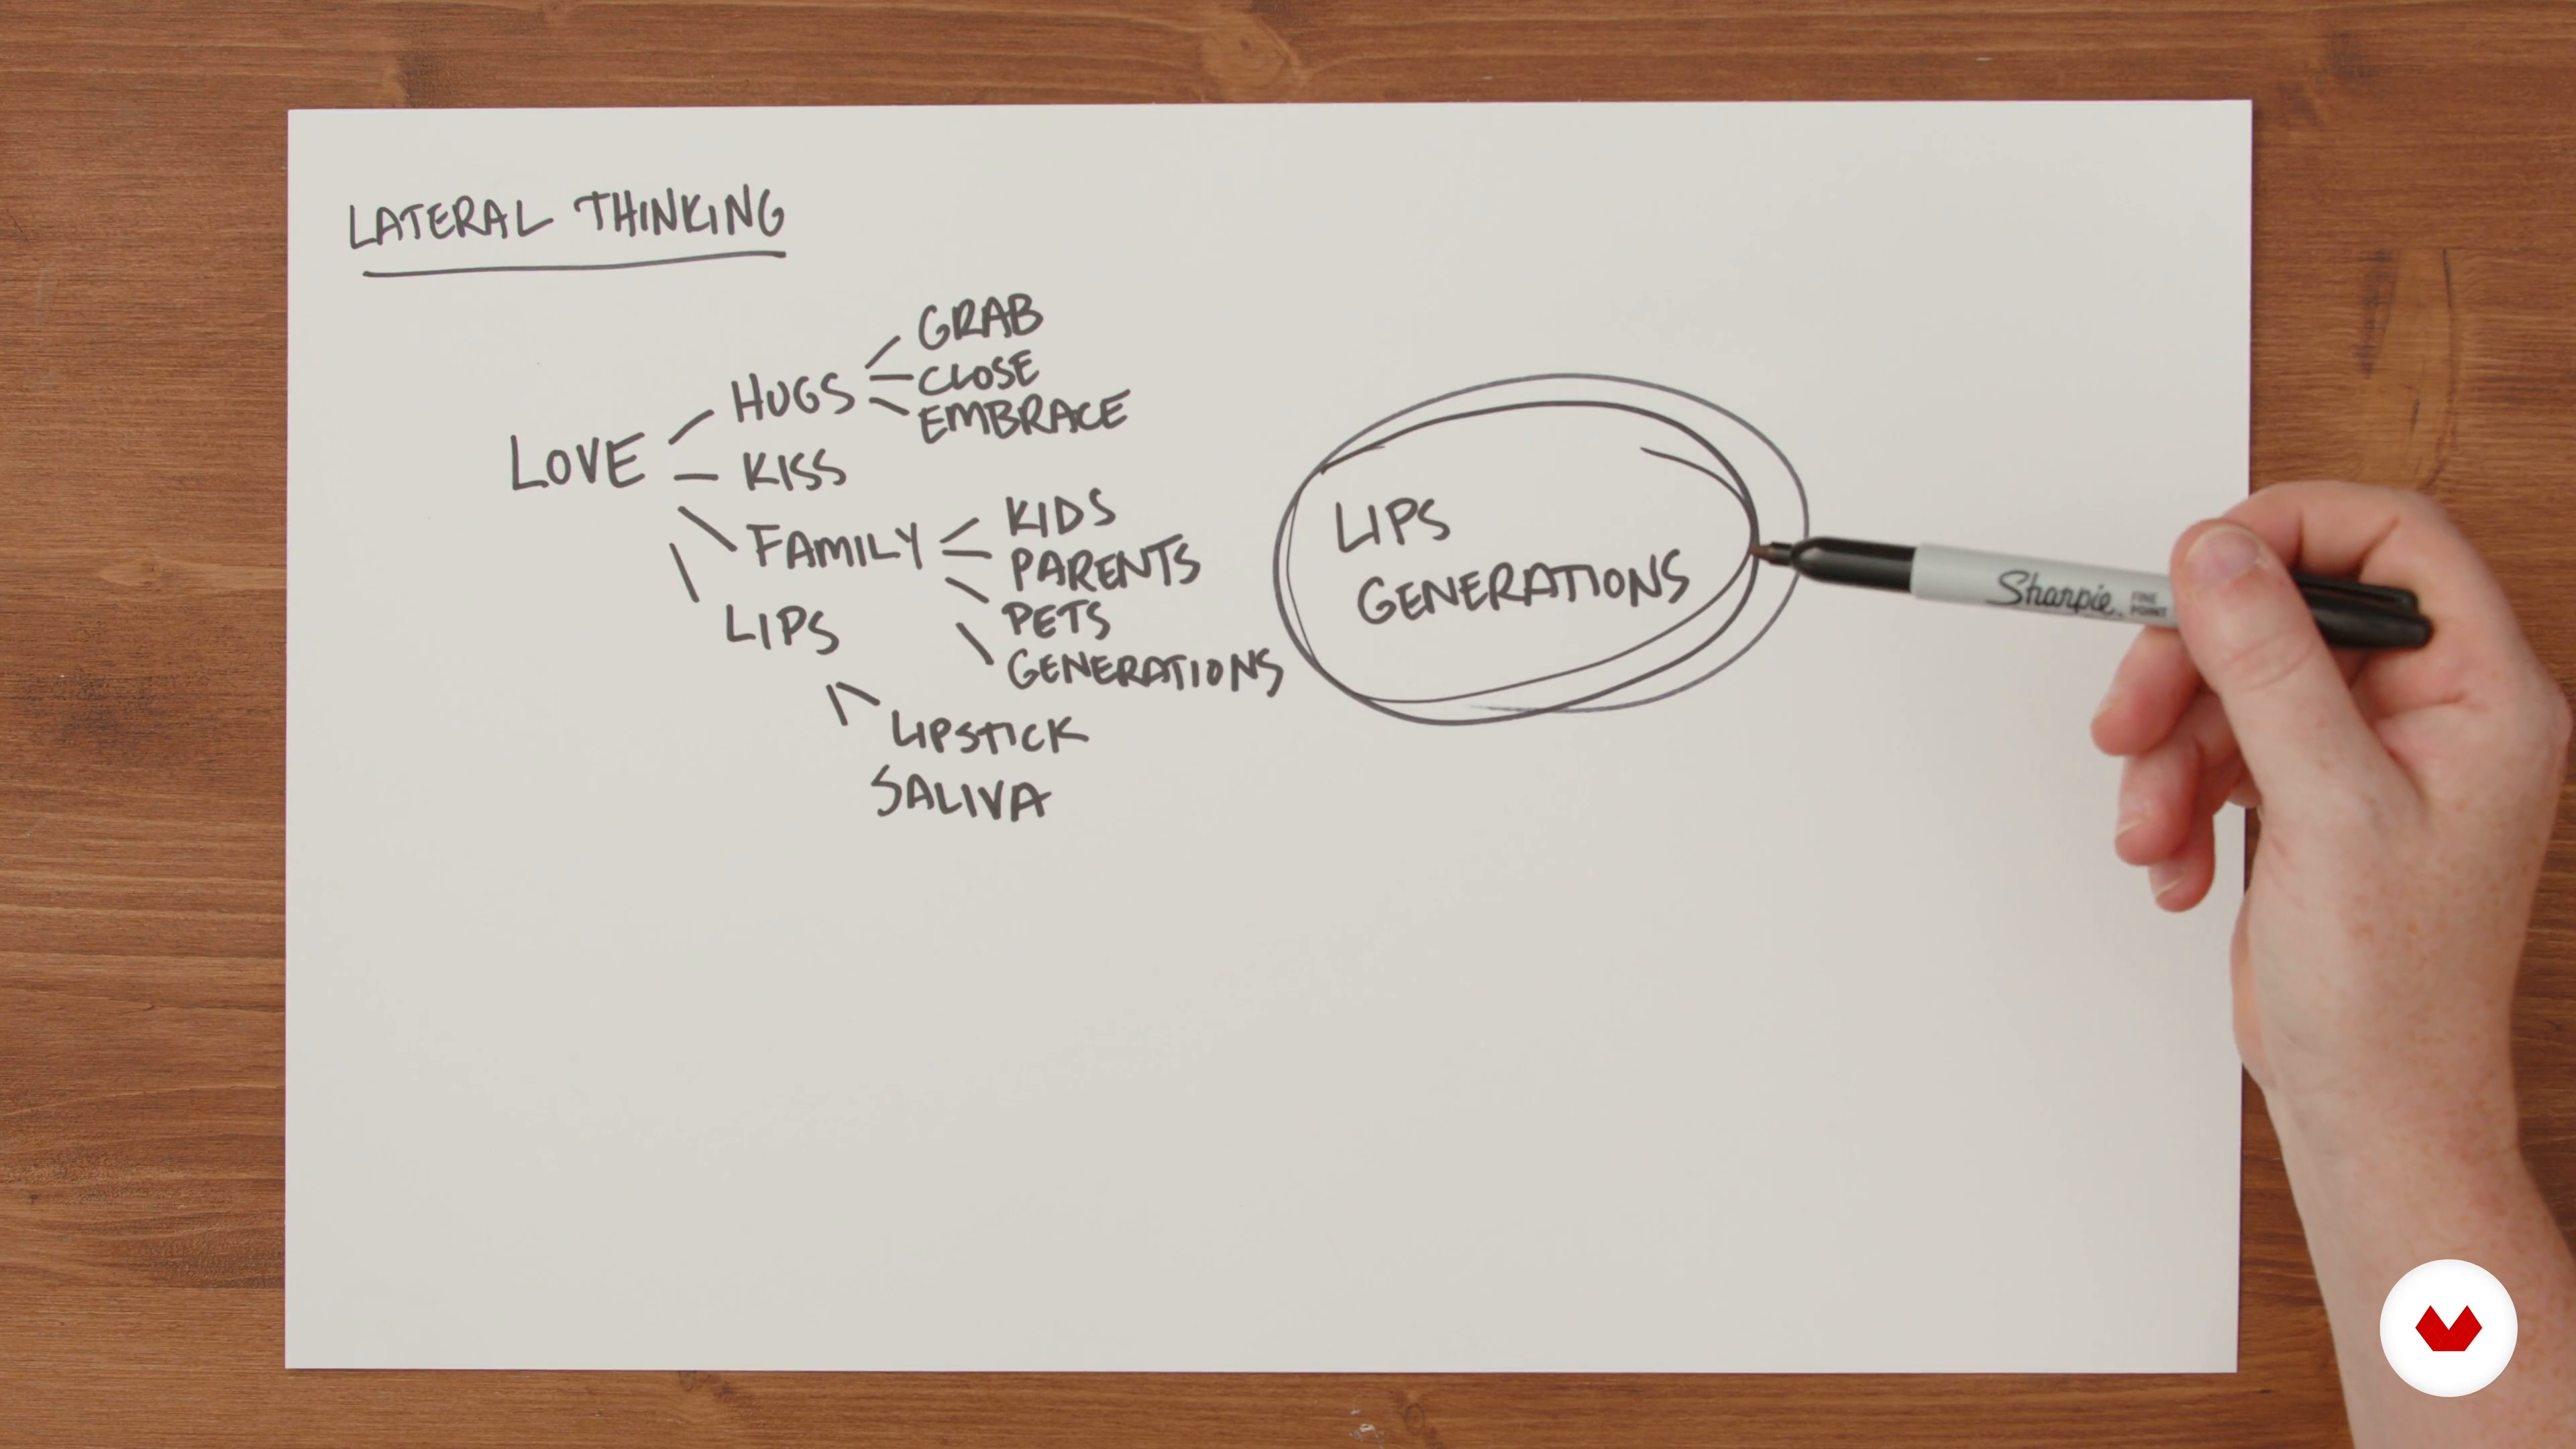 LATERAL THINKING
LOVE
HUGS
GRAB
CLOSE
EMBRACE
KISS
FAMILY
KIDS
PARENTS
PETS
GENERATIONS
LIPS
LIPSTICK
SALIVA
LIPS
GENERATIONS
Sharpie. FINE
POINT